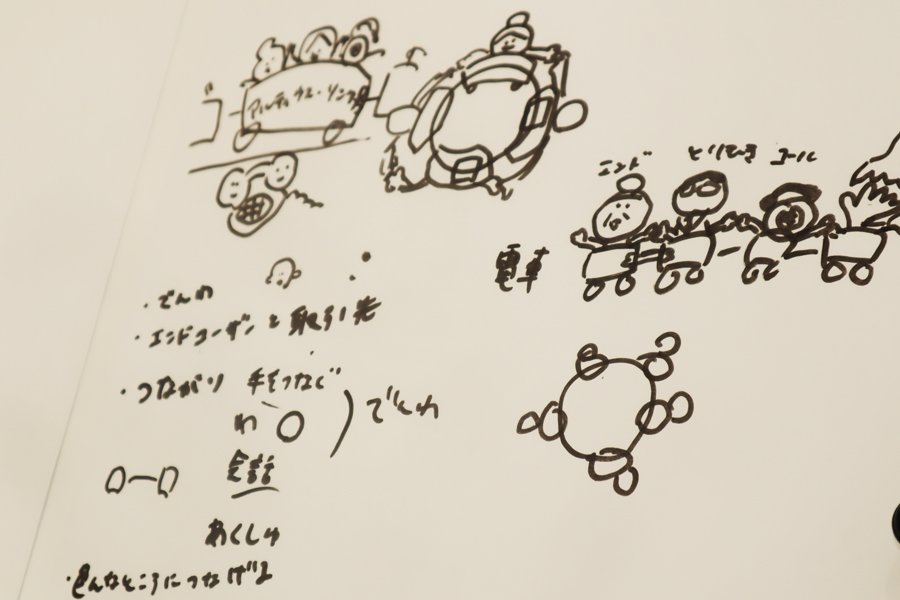 エンド とりひき コール
電車
・でんわ
・エンドユーザーと取引先
・つながり 手をつなぐ
わ ○ でんわ
会話
あくしゅ
・どんなところにつなげる